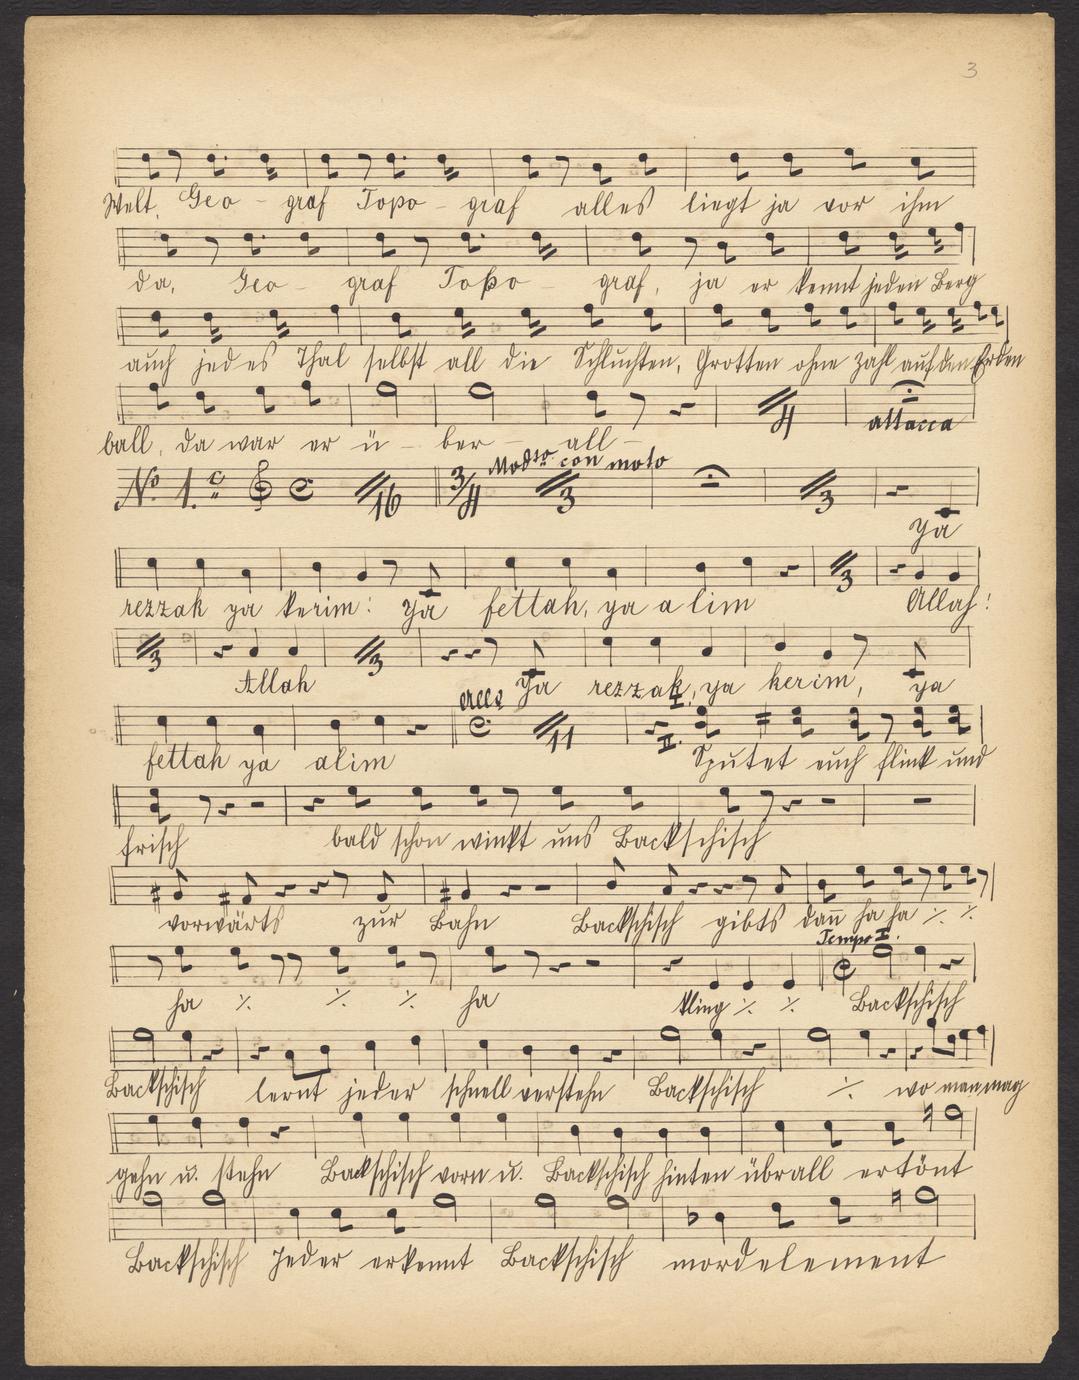 3
Welt, Geo - graf Topo - graf alles liegt ja vor ihm
da, Geo - graf Topo - graf, ja er kennt jeden Berg
auch jedes Thal selbst all die Schluchten, Grotten ohne Zahl auf den Erden
ball, da war er ü - ber - all -
4 attacca
No 1. C 16 3/4 Modto con moto 3 3
Ya
rezzak ya kerim! Ya fettah, ya alim 3 Allah!
3 Allah 3 Ya rezzak, ya kerim, ya
fettah ya alim C 11 I. II. Sputet euch flink und
frisch bald schon winkt uns Backschisch
vorwärts zur Bahn Backschisch gibts dan̄ ha ha ·/. ·/.
Tempo I.
ha ·/. ·/. ·/. ha kling ·/. ·/. Backschisch
Backschisch lernt jeder schnell verstehn Backschisch ·/. wo man mag
gehn u. stehn Backschisch vorn u. Backschisch hinten übrall ertönt
Backschisch Jeder erkennt Backschisch mordelement